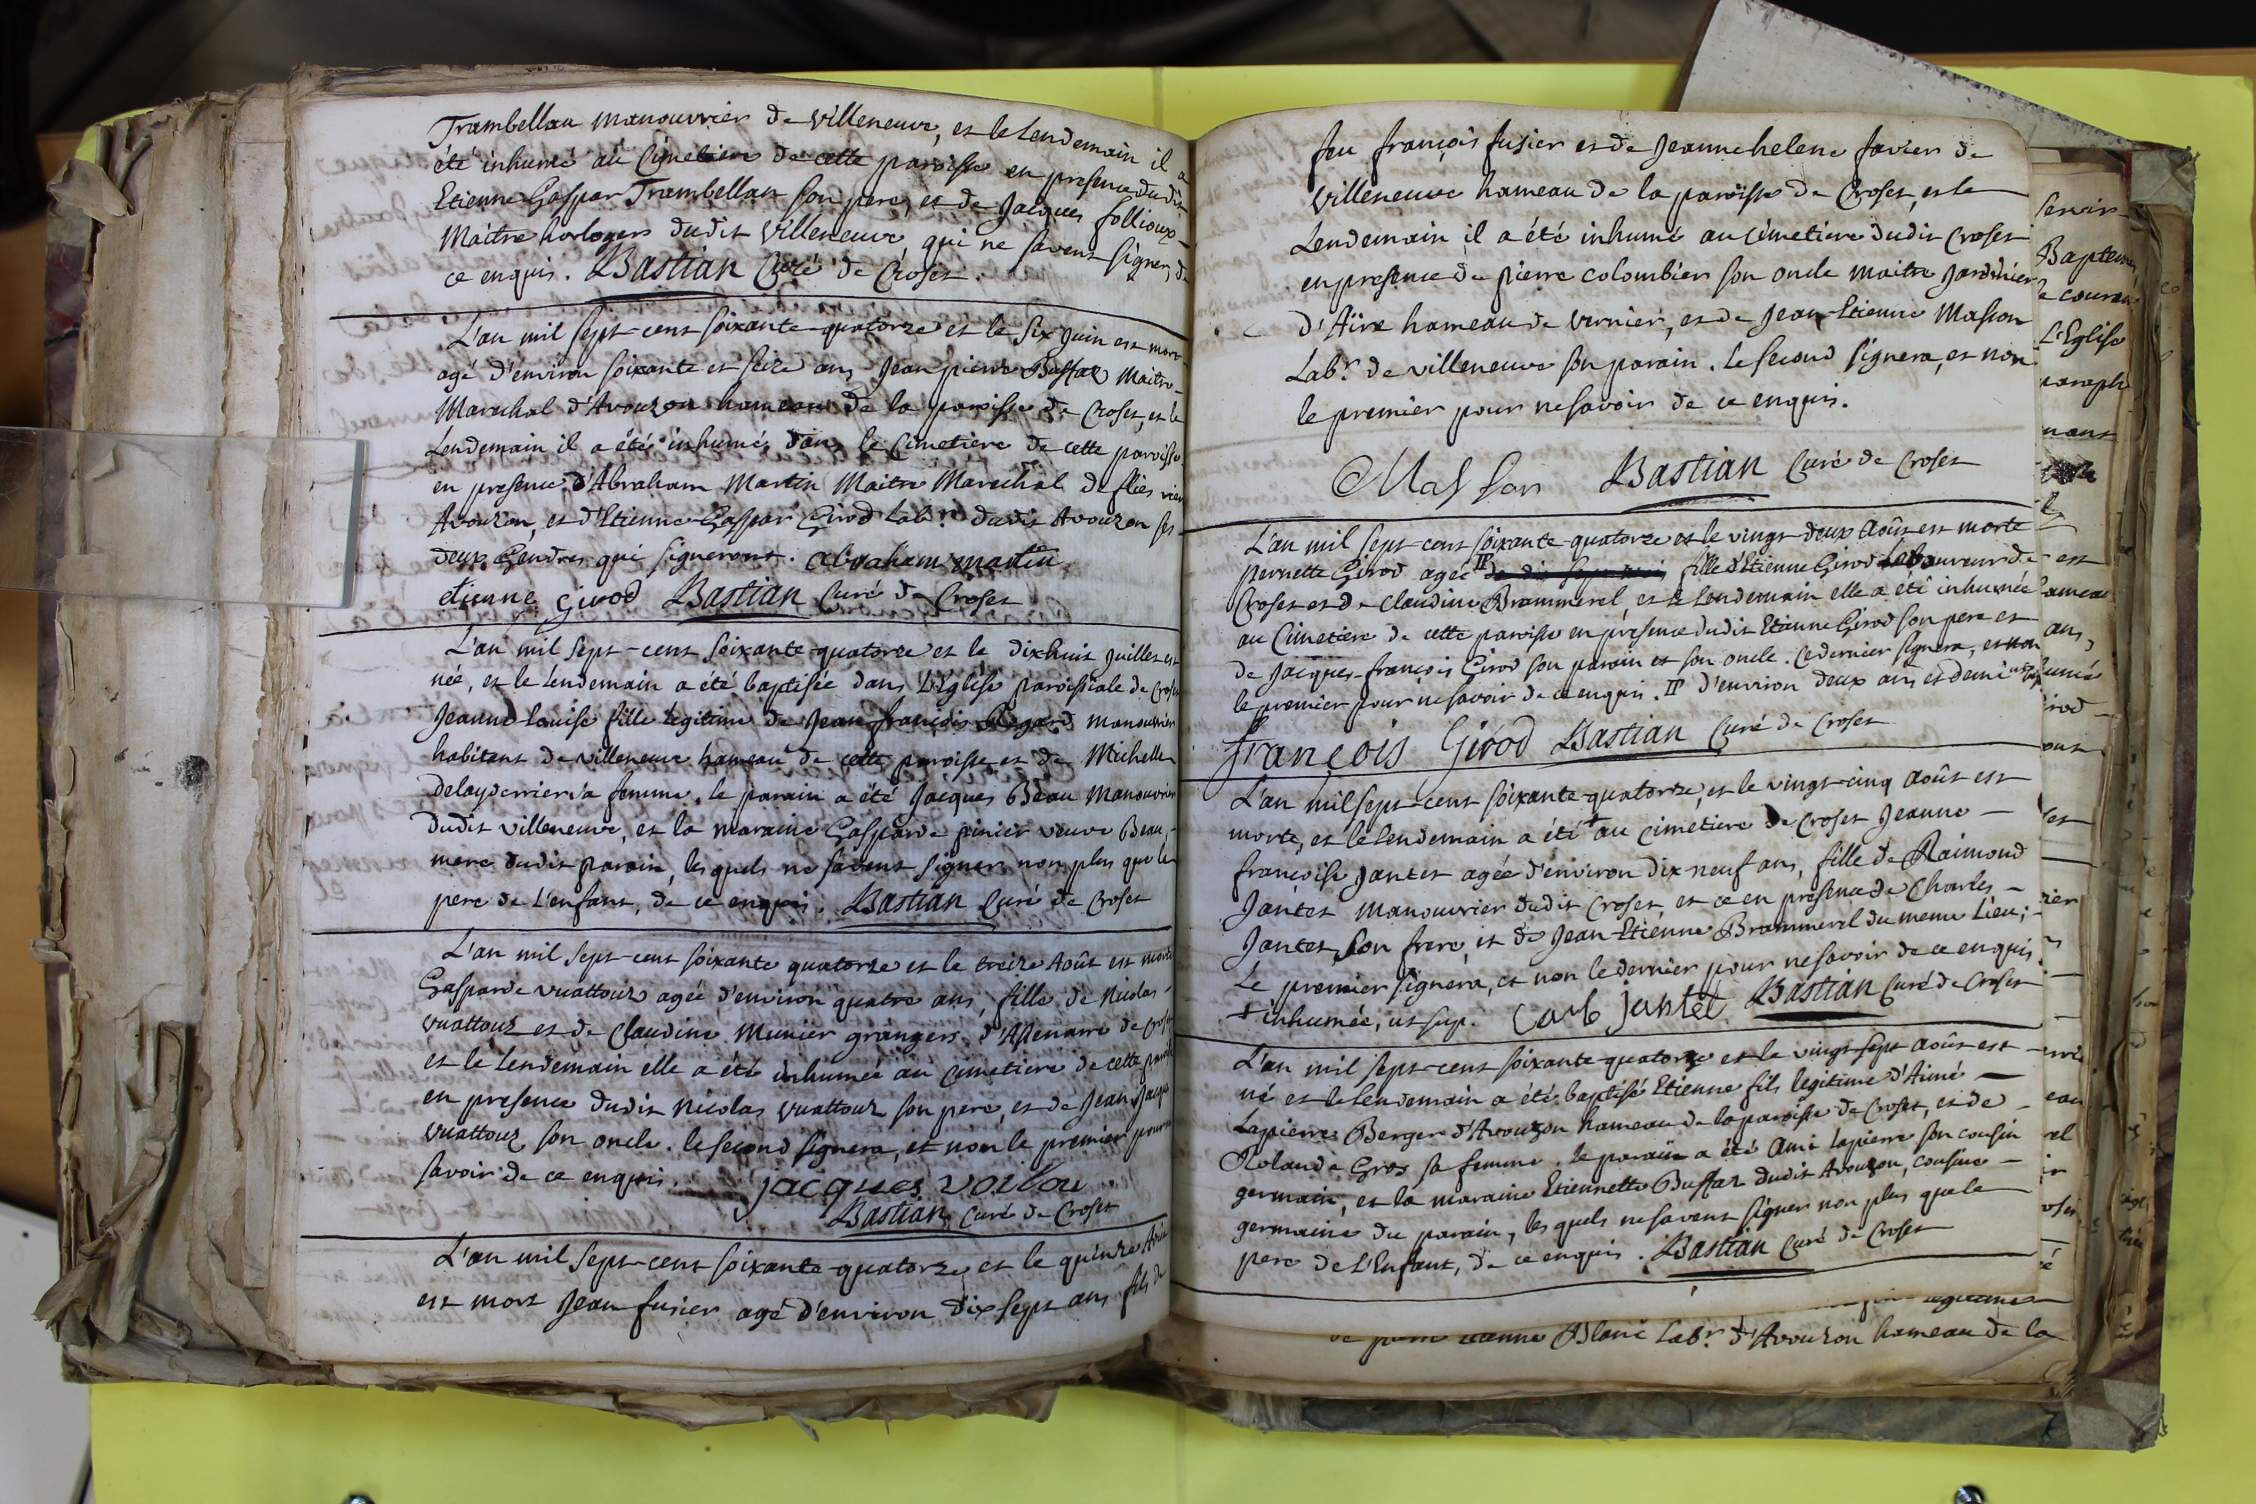 Trambellan manouvrier de Villeneuve, et le Lendemain il a
été inhumé au Cimetiere de cette paroisse en presence dudit
Etienne Gaspar Trambellan son pere, et de Jacques follioux
Maitre horloger dudit Villeneuve qui ne savent signer, de
ce enquis. Bastian Curé de Croset.
L'an mil sept-cent soixante-quatorze et le six Juin est mort
agé d'environ soixante et seize ans Jean pierre Buffaz Maitre
Marechal d'Avouzon hameau de la paroisse de Croset, et le
Lendemain il a été inhumé dans le Cimetiere de cette paroisse
en presence d'Abraham Martin Maitre Marechal de flies rière
Avouzon, et d'Etienne Gaspar Girod Labr. dudit Avouzon ses
deux Gendres qui signeront. abraham martin
etienne girod Bastian Curé de Croset
L'an mil sept-cent soixante-quatorze et le dixhuit Juillet est
née, et le Lendemain a été baptisée dans L'Eglise paroissiale de Croset
Jeanne Louise fille legitime de Jean françois Regard manouvrier
habitant de villeneuve hameau de cette paroisse et de Michelle
delayderrier sa femme. le parain a été Jacques Beau Manouvrier
dudit villeneuve, et la maraine Gasparde pinier veuve Beau,
mere dudit parain, les quels ne savent signer non plus que le
pere de L'enfant, de ce enquis. Bastian Curé de Croset
L'an mil sept-cent soixante quatorze et le treize Août est morte
Gasparde vuattouz agée d'environ quatre ans, fille de Nicolas
vuattouz et de Claudine Munier grangers d'Asserans de Croset
et le Lendemain elle a été inhumée au cimetiere de cette paroisse
en presence dudit Nicolas vuattouz son pere, et de Jean Jacques
vuattouz son oncle. le second signera, et non le premier pour ne
savoir de ce enquis. jacques voilou
Bastian curé de Croset
L'an mil sept-cent soixante-quatorze et le quinze Août
est mort Jean fusier agé d'environ dix sept ans fils de
feu françois fusier et de Jeanne helene favier de
villeneuve hameau de la paroisse de Croset, et le
Lendemain il a été inhumé au cimetiere dudit Croset
en presence de pierre colombier son oncle maitre Jardinier
d'Aïre hameau de vernier, et de Jean-Etienne Masson
Labr. de villeneuve son parain. Le second signera, et non
le premier pour ne savoir de ce enquis.
Masson Bastian Curé de Croset
L'an mil sept-cent soixante-quatorze et le vingt-deux Août est morte
pernette Girod agée # fille d'Etienne Girod Laboureur de
Croset et de Claudine Brammerel, et le Lendemain elle a été inhumée
au Cimetiere de cette paroisse en presence dudit Etienne Girod son pere et
de Jacques-françois Girod son parain et son oncle. Ce dernier signera, et non
le premier pour ne savoir de ce enquis. # d'environ deux ans et demi ut sup.
françois Girod Bastian Curé de Croset
L'an mil sept-cent soixante-quatorze, et le vingt-cinq Août est
morte, et le Lendemain a été + au cimetiere de Croset Jeanne
françoise Jantet agée d'environ dix-neuf ans, fille de Raimond
Jantet Manouvrier dudit Croset, et ce en presence de Charles
Jantet son frere, et de Jean-Etienne Brammerel du meme Lieu;
Le premier signera, et non le dernier pour ne savoir de ce enquis.
+ inhumée, ut sup. Carl jantet Bastian Curé de Croset
L'an mil sept-cent soixante-quatorze et le vingt-sept Août est
né et le Lendemain a été baptisé Etienne fils legitime d'Aimé
Lapierre Berger d'Avouzon hameau de la paroisse de Croset, et de
Rolande Gros sa femme. le parain a été Ami Lapierre son cousin
germain, et la maraine Etiennette Buffaz dudit Avouzon, cousine
germaine du parain, les quels ne savent signer non plus que le
pere de L'Enfant, de ce enquis. Bastian Curé de Croset
legitime
Blanc Labr. d'Avouzon hameau de la